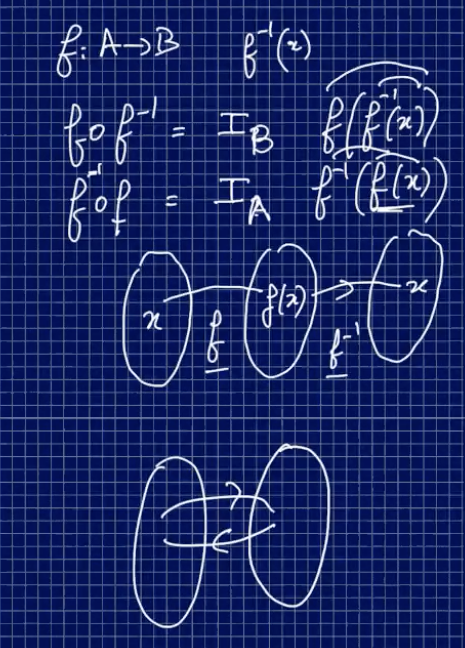 f: A→B f⁻¹(x)
f∘f⁻¹ = I_B f(f⁻¹(x))
f⁻¹∘f = I_A f⁻¹(f(x))
x f(x) x
f f⁻¹